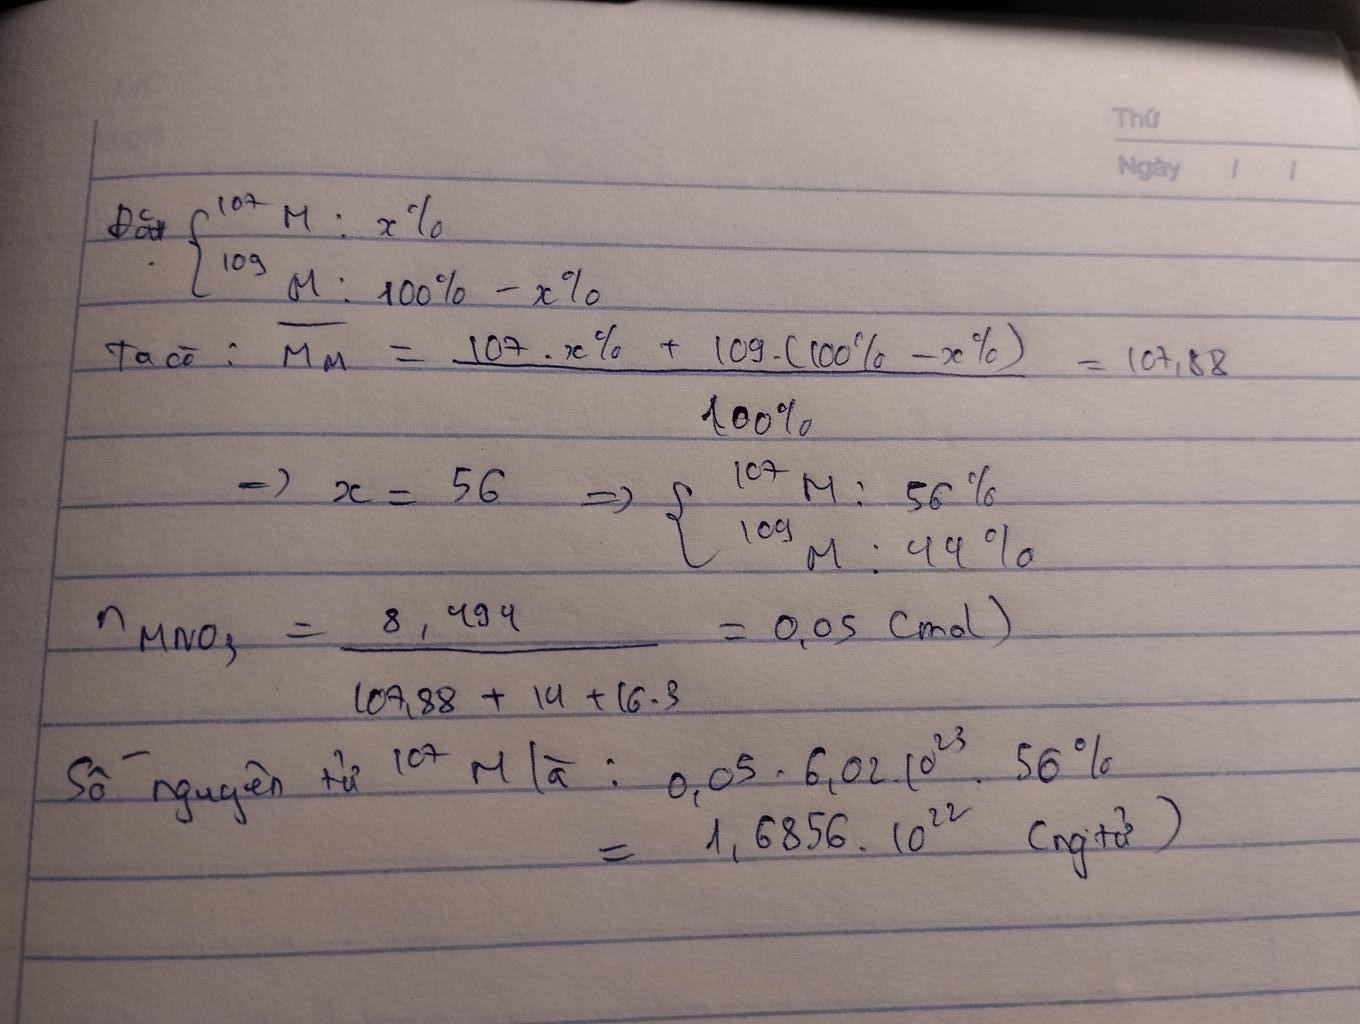 Thứ
Ngày / /
Đặt { ¹⁰⁷M : x%
¹⁰⁹M : 100% - x%
Ta có : M̅_M = (107 . x% + 109.(100% - x%)) / 100% = 107,88
=> x = 56 => { ¹⁰⁷M : 56%
¹⁰⁹M : 44%
n_MNO₃ = 8,494 / (107,88 + 14 + 16.3) = 0,05 (mol)
Số nguyên tử ¹⁰⁷M là : 0,05 . 6,02.10²³. 56%
= 1,6856. 10²² (ng.tử)